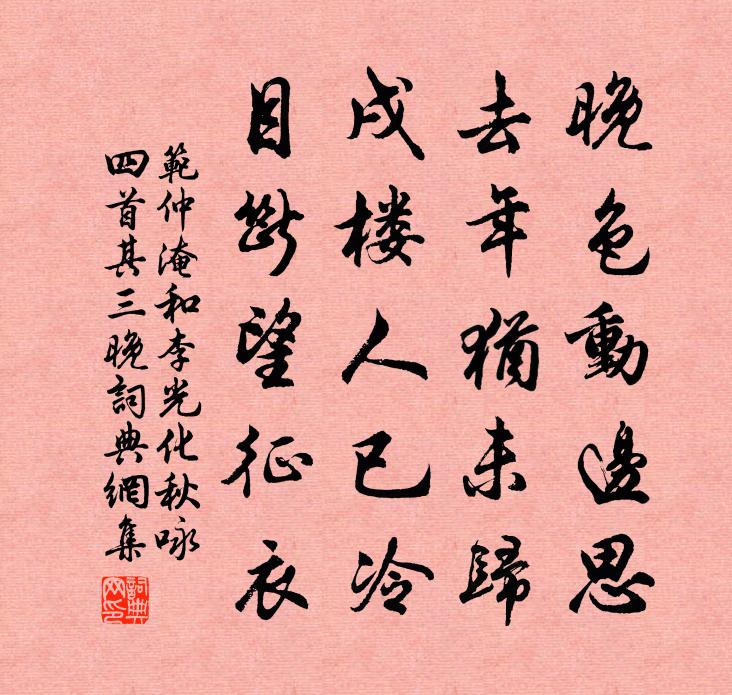 晚色動邊思
去年猶未歸
戍楼人已冷
目斷望征衣
範仲淹和李光化秋咏
四首其三晚詞典網集
詞典
网印